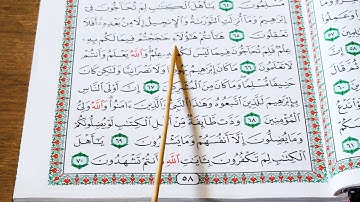 يَٰٓأَهْلَ ٱلْكِتَٰبِ لِمَ تُحَآجُّونَ فِىٓ
إِبْرَٰهِيمَ وَمَآ أُنزِلَتِ ٱلتَّوْرَىٰةُ وَٱلْإِنجِيلُ إِلَّا مِنۢ بَعْدِهِۦٓ أَفَلَا
تَعْقِلُونَ ٦٥ هَٰٓأَنتُمْ هَٰٓؤُلَآءِ حَٰجَجْتُمْ فِيمَا لَكُم بِهِۦ
عِلْمٌ فَلِمَ تُحَآجُّونَ فِيمَا لَيْسَ لَكُم بِهِۦ عِلْمٌ وَٱللَّهُ يَعْلَمُ وَأَنتُمْ
لَا تَعْلَمُونَ ٦٦ مَا كَانَ إِبْرَٰهِيمُ يَهُودِيًّا وَلَا نَصْرَانِيًّا وَلَٰكِن كَانَ
حَنِيفًا مُّسْلِمًا وَمَا كَانَ مِنَ ٱلْمُشْرِكِينَ ٦٧ إِنَّ أَوْلَى ٱلنَّاسِ
بِإِبْرَٰهِيمَ لَلَّذِينَ ٱتَّبَعُوهُ وَهَٰذَا ٱلنَّبِىُّ وَٱلَّذِينَ ءَامَنُوا۟ وَٱللَّهُ وَلِىُّ
ٱلْمُؤْمِنِينَ ٦٨ وَدَّت طَّآئِفَةٌ مِّنْ أَهْلِ ٱلْكِتَٰبِ لَوْ يُضِلُّونَكُمْ
وَمَا يُضِلُّونَ إِلَّآ أَنفُسَهُمْ وَمَا يَشْعُرُونَ ٦٩ يَٰٓأَهْلَ
ٱلْكِتَٰبِ لِمَ تَكْفُرُونَ بِـَٔايَٰتِ ٱللَّهِ وَأَنتُمْ تَشْهَدُونَ ٧٠
٥٨